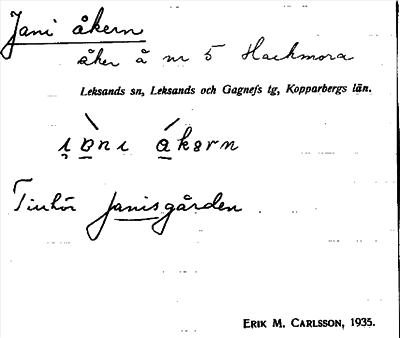 Jani åkern
åker å nr 5 Hackmora
Leksands sn, Leksands och Gagnefs tg, Kopparbergs län.
Tillhör Janisgården
ERIK M. CARLSSON, 1935.